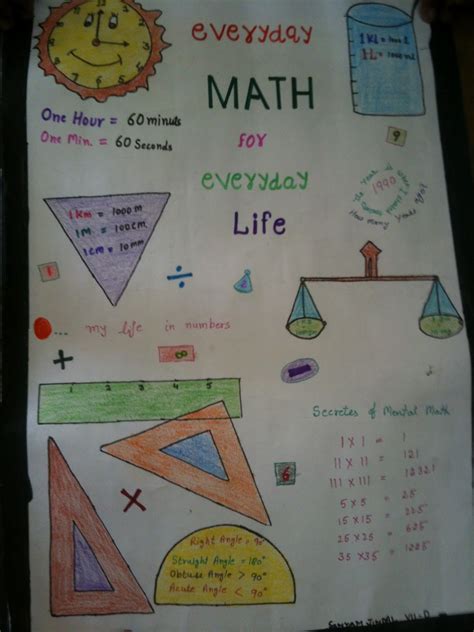 everyday
MATH
for
everyday
Life
1KL = 1000 L
1L = 1000 ml
One Hour = 60 minuts
One Min. = 60 Seconds
9
The Year
1990
How many Years ago?
1 KM = 1000 M
1M = 100CM
1CM = 10MM
1
÷
2
... my life in numbers
+
8
1 2 3 4 5
Secretes of Mental Math
1 X 1 = 1
11 X 11 = 121
111 X 111 = 12321
5 x 5 = 25
15 x 15 = 225
25 x 25 = 625
35 x 35 = 1225
6
×
Right Angle = 90°
Straight Angle = 180°
Obtuse Angle > 90°
Acute Angle < 90°